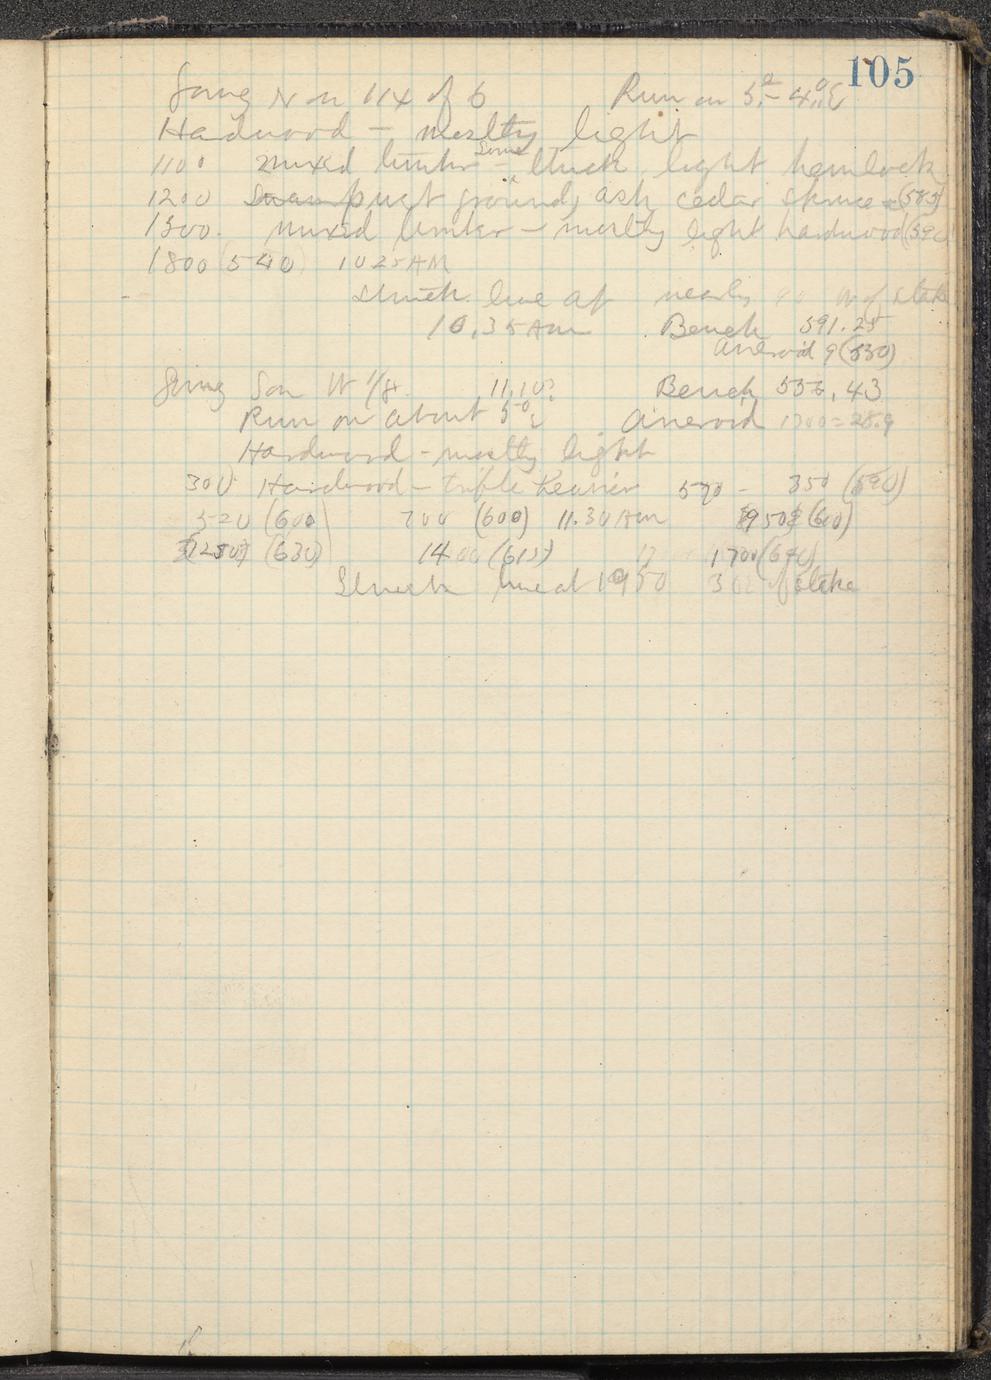 105
Going N on 1/4 of 6 Run on 5° - 4° E
Hardwood - mostly light
1100 mixed timber - some thick light hemlock
1200 Swamp wet ground, ash cedar spruce (585)
1300. mixed timber - mostly light hardwood (590)
1800 (540) 1025 AM
Struck line at nearly 90 W of stake
10,35 Am Bench 591.25
aneroid 9 (530)
Going S on W 1/8 11.10 Bench 556.43
Run on about 5° E Aneroid 1700=28.9
Hardwood - mostly light
300 Hardwood - trifle heavier 570 - 350 (590)
520 (600) 700 (600) 11.30 Am 950 (610)
1250 (630) 1400 (615) 1700 (640)
Struck line at 1950 of stake